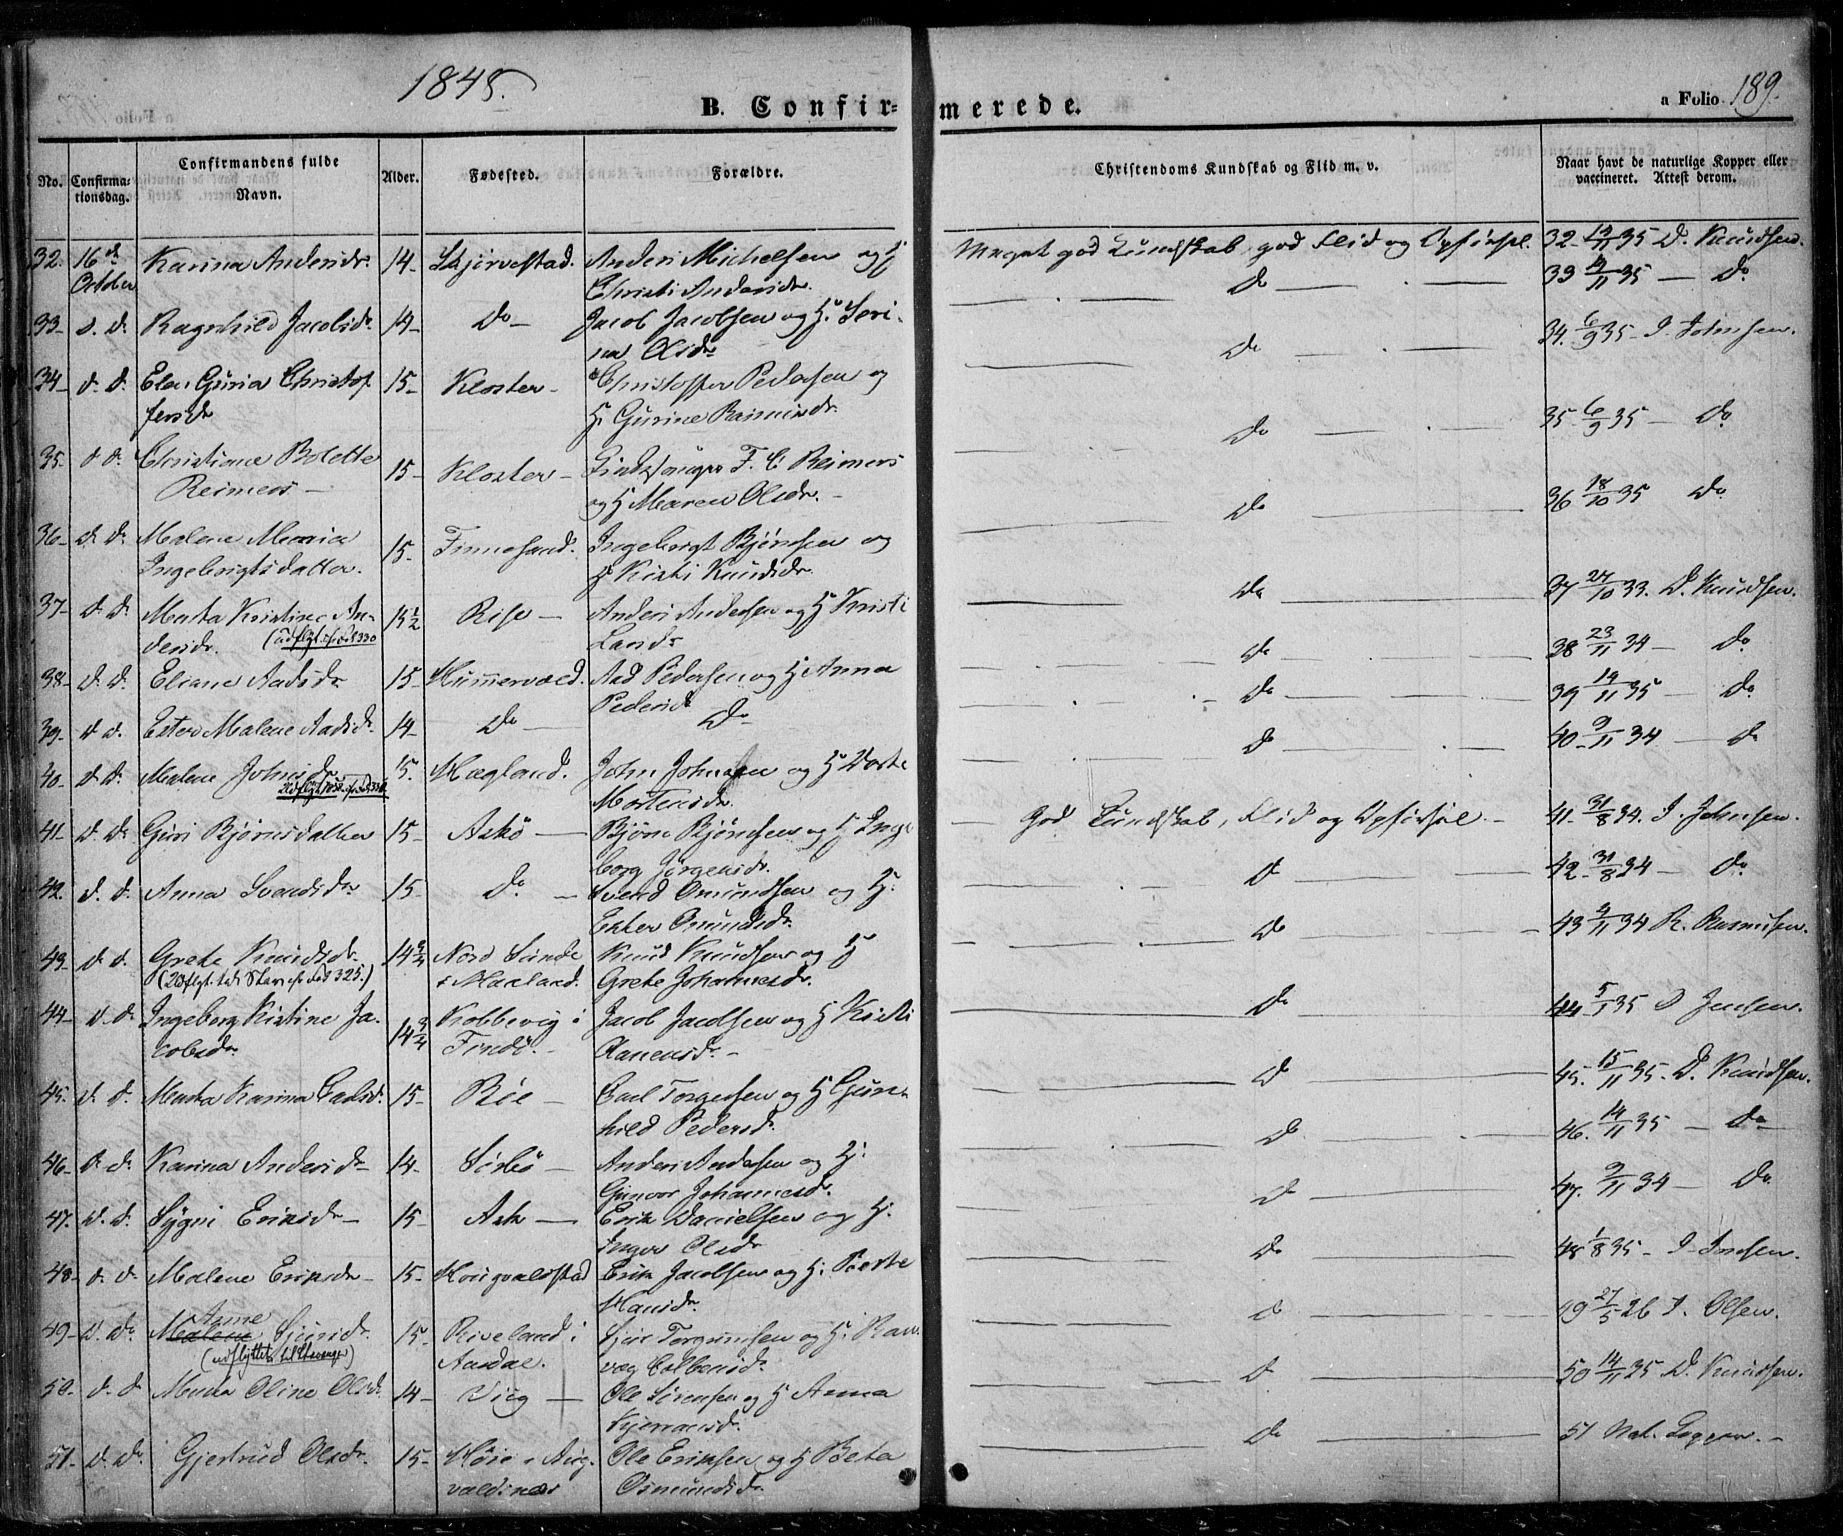 1848.
B. Confir=
merede.
a Folio 189.
No.
Confirma-
tionsdag.
Confirmandens fulde
Navn.
Alder.
Fødested.
Forældre.
Christendoms Kundskab og Flid m. v.
Naar havt de naturlige Kopper eller
vaccineret. Attest derom.
32. 16d Karina Andersdr. 14- Skjervestad. Anders Michelsen og H
October Christi Andersdr.
Meget god Kundskab, god Flid og Opførsel. 32- 14/11 35 D. Knudsen.
33- d. d. Ragnhild Jacobsdr 14- Do- Jacob Jacobsen og H. Seri-
na Olsdr
Do 33 14/11 35 — Do
34- d. d. Elen Guria Christof 15- Kloster- Christoffer Pedersen og
fersdr H. Gurine Rasmusdr.
Do 34. 6/9 35- I. Johnsen.
35. d d. Christiane Bolette 15- Kloster- F. C. Reimers
Reimers- og H Maren Olsdr.-
Do 35- 6/9 35- Do
36- d. d. Malene Maria 15- Finnesand. Ingebrigt Bjørnsen og
Ingebrigtsdatter. H Kisti Knudsdr.
Do 36 18/10 35 Do
37- d d. Marta Kristine An- 15 1/2 Rise- Anders Andersen og H Kristi
dersdr. Larsdr
Do 37 27/10 33. D. Knudsen.
38- d. d. Eliane Aadsdr 15- Hummervold. Aad Pedersen og H Anna
Pedersdr
Do 38 23/11 34- Do
39- d d. Ester Malene Aadsdr 14- Do- Do
Do 39 14/11 35- Do
40- d d. Malene Johnsdr 15. Hægland. John Johnsen og H Dorte
Mortensdr.
Do 40- 9/11 34 — Do
41- d. d. Guri Bjørnsdatter 15- Askø- Bjørn Bjørnsen og H Inge
borg Jørgensdr.
God Kundskab, Flid og Opførsel- 41- 31/8 34. I. Johnsen.
42. d. d. Anna Svendsdr 15- Do. Svend Omundsen og H.
Ester Omundsdr.
d 42- 31/8 34- Do.
43- d. d. Grete Knudsdr. 14 3/4 Nord Sunde Knud Knudsen og H
i Maaland. Grete Johannesdr.
Do 43 9/11 34 R. Rasmusen.
44- d. d. Ingeborg Kistine Ja- 14 3/4 Kobbevig i Jacob Jacobsen og H Kisti
cobsdr Findø.-
Do 44- 5/1 35 Jensen.
45- d. d. Marta Karina Carlsd. 15- Bøe- Carl Torgersen og H Gun-
hild Pedersdr.
Do 45. 15/11 35. D. Knudsen.
46- d. d. Karina Andersdr 14- Sørbø- Anders Andersen og H.
Gunvor Johannesdr.
Do 46. 14/11 35- Do
47. d. d. Sygni Eriksdr- 15- Ask- Erik Danielsen og H.
Inger Olsdr
Do 47. 9/11 34- Do
48- d. d. Malene Eriksdr- 15- Erik Jacobsen og H.
Hansdr.
Do 48 1/8 35-
49- d. d. Anne Sjursdr. 15- Riveland i Torgrimsen og H. Ran
Aardal. veg
(udflyttet til Stavanger)
d 49 27/5 36 I. Olsen.
50- d. d Marta Oline Olsd. 14- Vig- Ole Sørensen og H Anna
d 50 14/11 35 D. Knudsen.
51- d. d. Gjertrud Olsdr. 15- Høie i Aug- Ole Eriksen og H Beta
valdsnæs Osmundsdr
Do 51 Nat. Copper.-